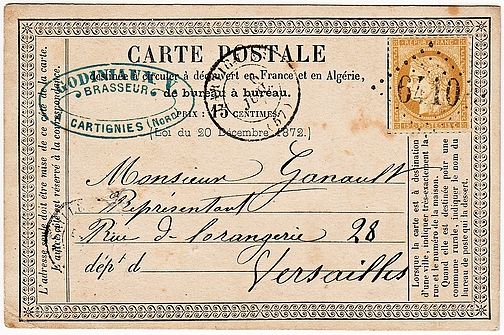 CARTE POSTALE
destinée à circuler à découvert en France et en Algérie,
de bureau à bureau.
PRIX: 15 CENTIMES
(Loi du 20 Décembre 1872.)
BRASSEUR
CARTIGNIES (NORD)
15
(57)
REPUB. FRANC.
6710
L'adresse seule doit être mise de ce côté de la carte.
L'autre côté est réservé à la correspondance.
Monsieur Ganault
Représentant
Rue de l'orangerie 28
dép't d
Versailles
Lorsque la carte est à destination
d'une ville, indiquer très-exactement la
rue et le numéro de la maison.
Quand elle est destinée pour une
commune rurale, indiquer le nom du
bureau de poste qui la dessert.